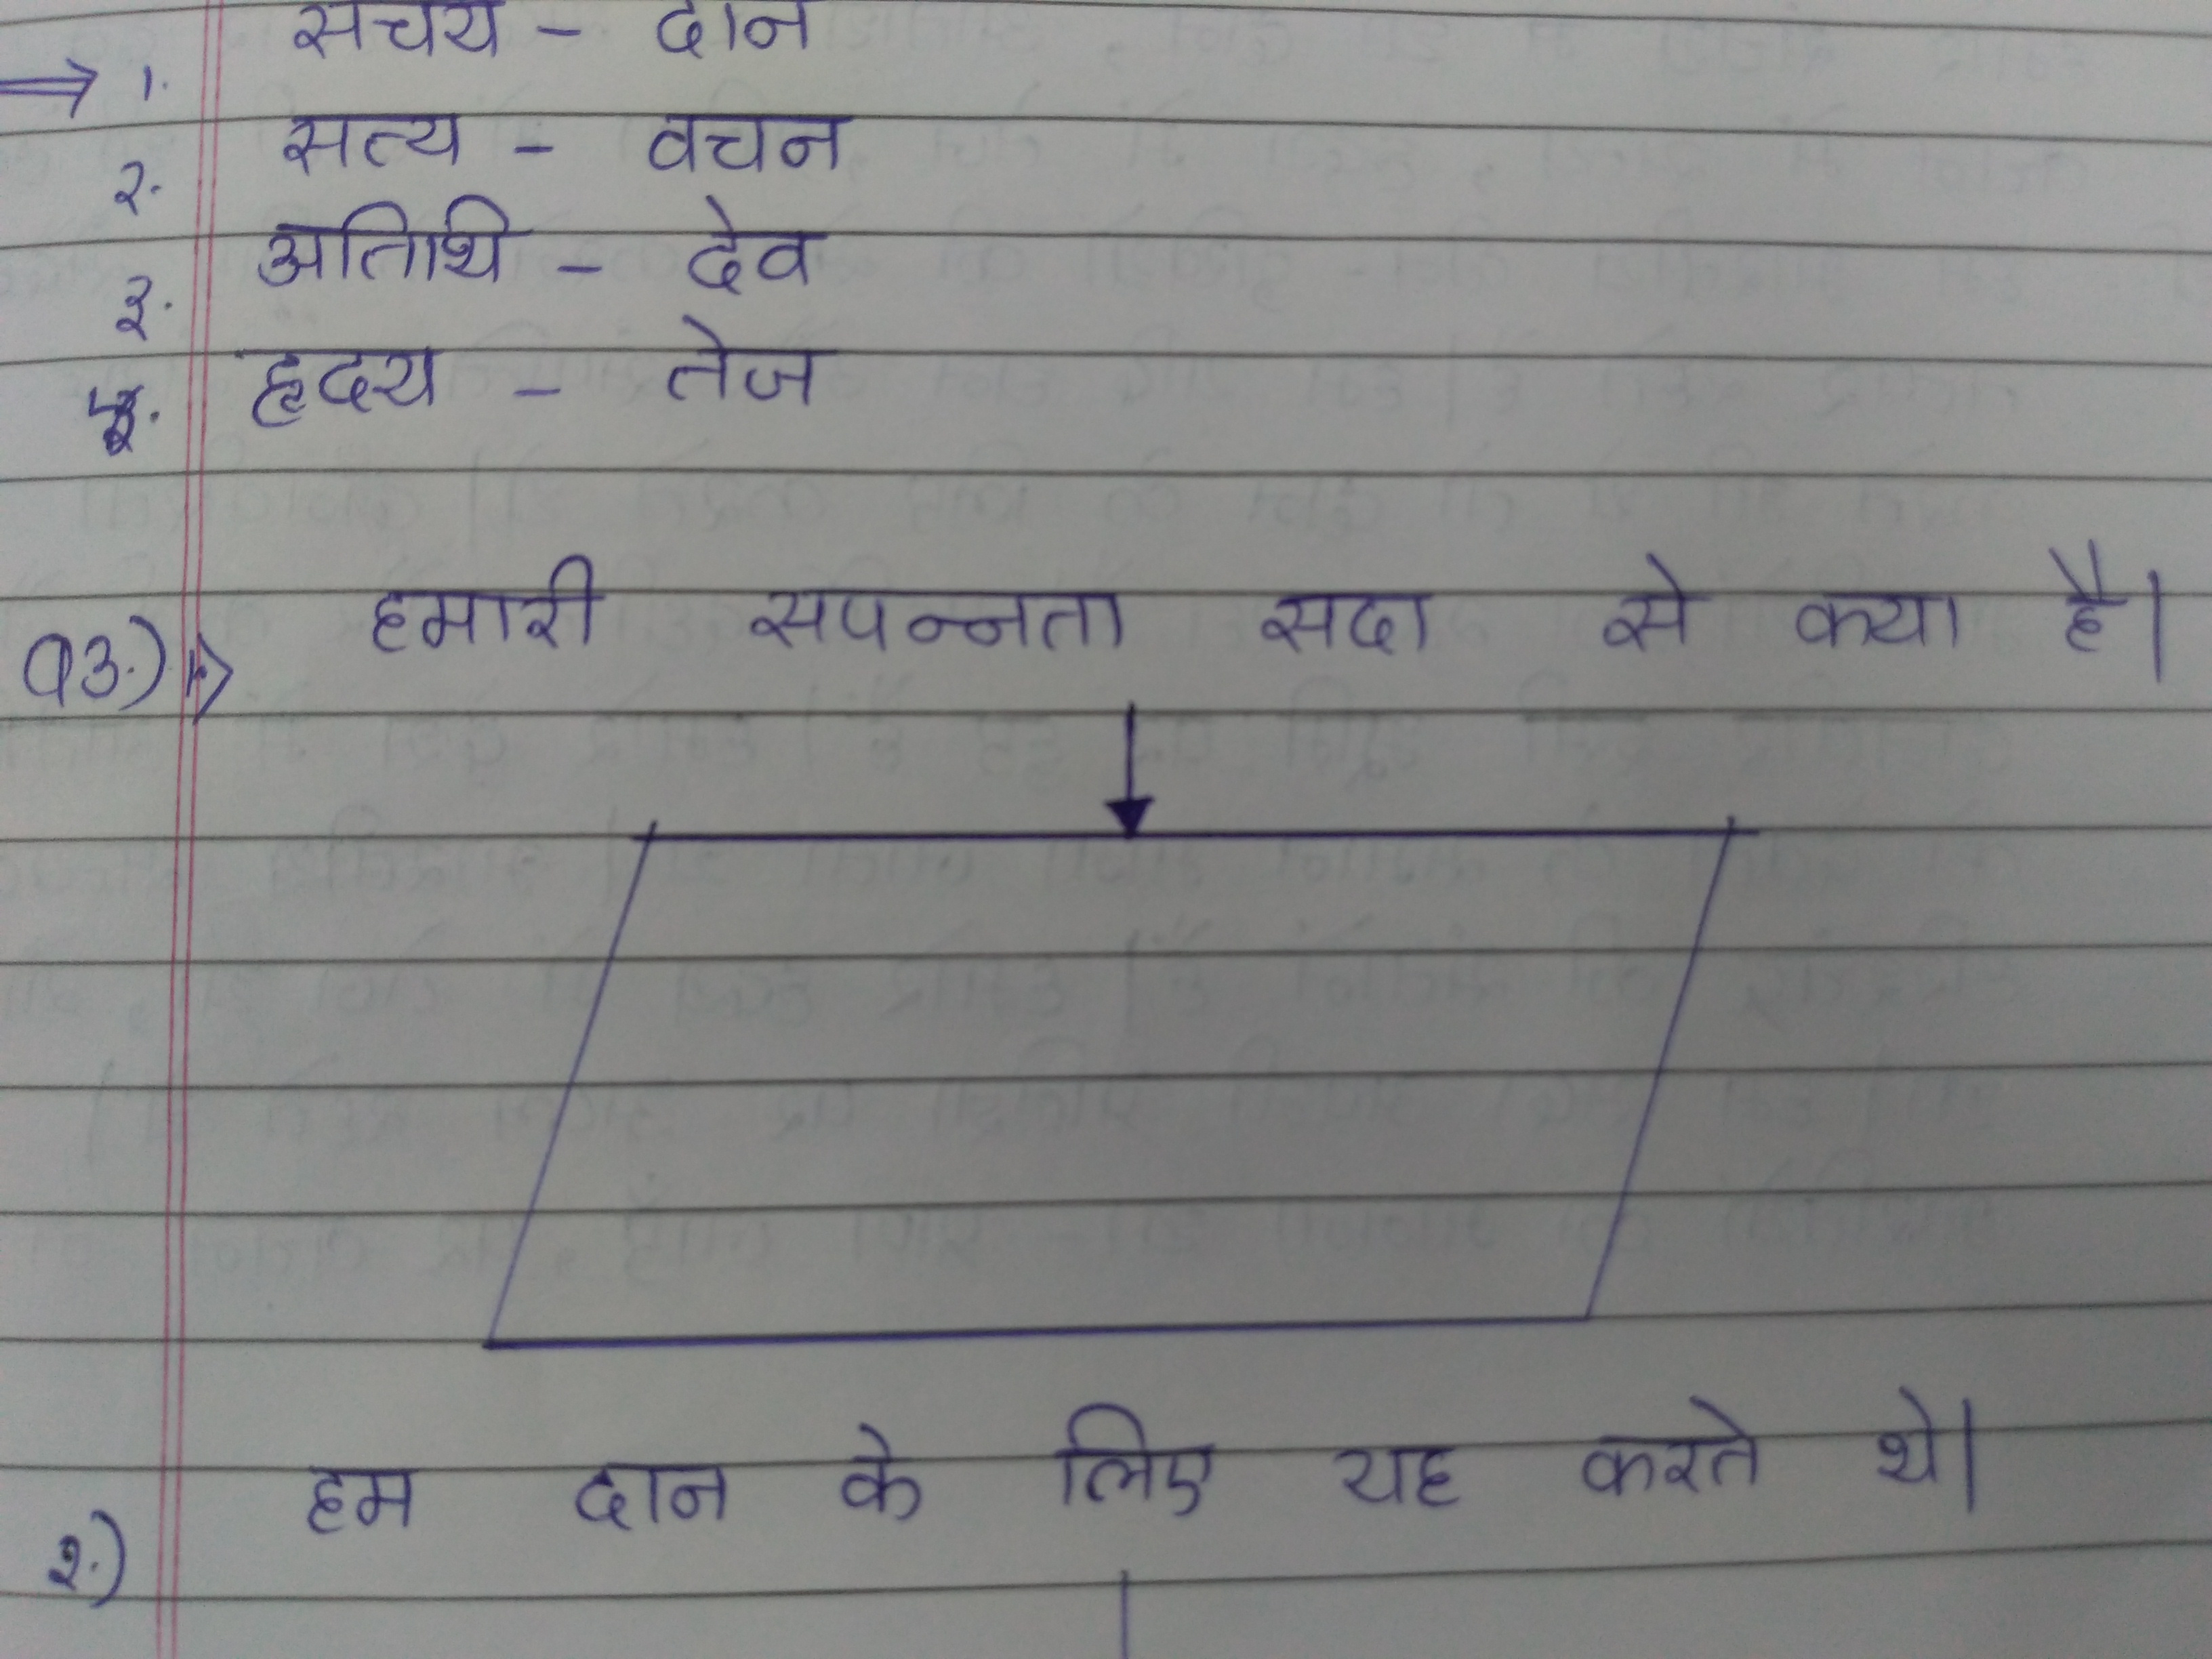 → १. सचय - दान
२. सत्य - वचन
३. अतिथि - देव
४. हृदय - तेज
Q3.) १.) हमारी सपन्नता सदा से क्या है।
२.) हम दान के लिए यह करते थे।